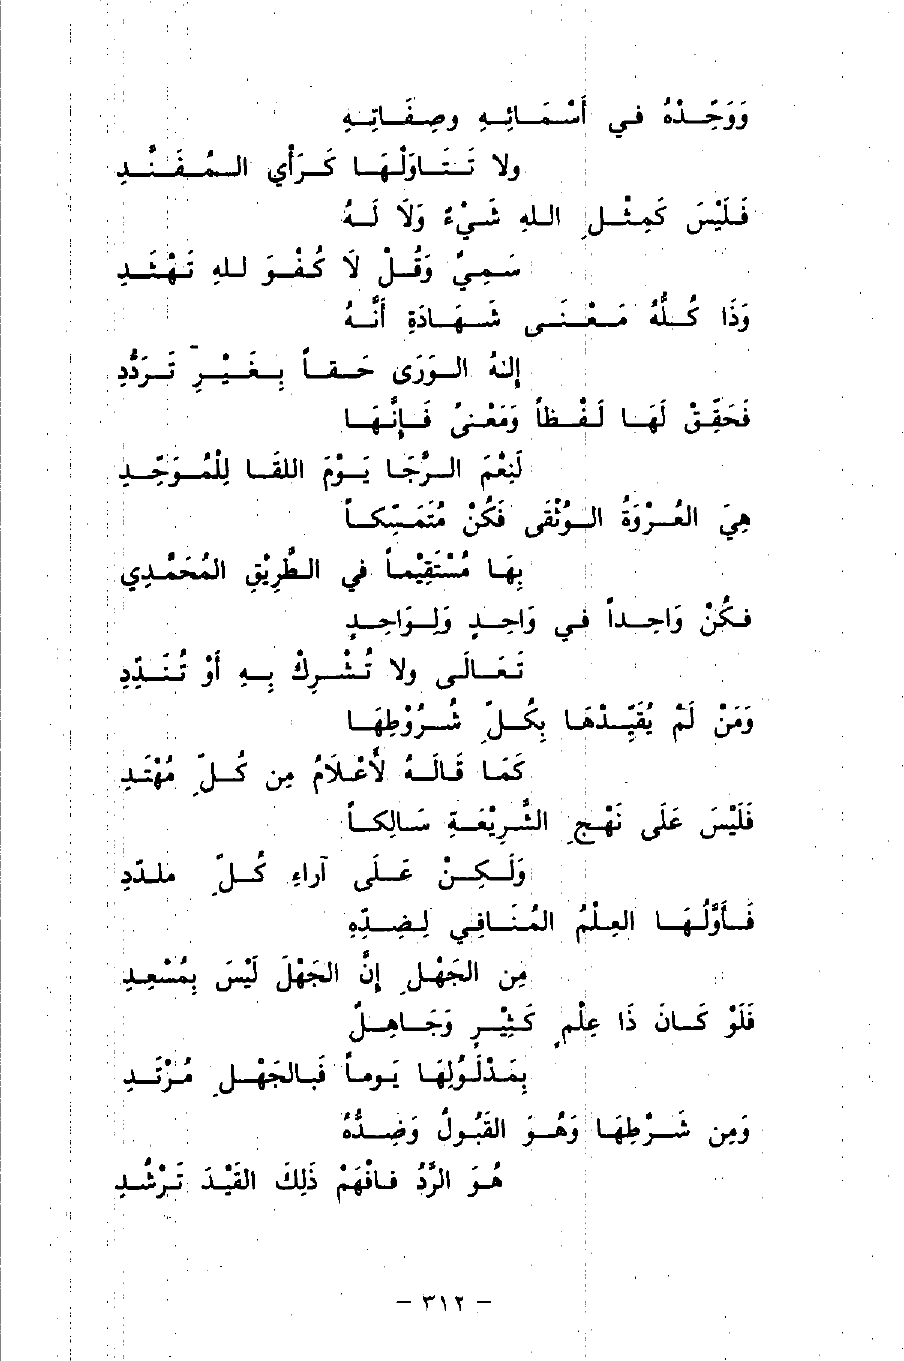 وَوَحِّدْهُ في أَسْمَائِهِ وصِفَاتِهِ
ولا تَتَأَوَّلْهَا كَرَأْيِ المُفَنِّدِ
فَلَيْسَ كَمِثْلِ اللهِ شَيْءٌ وَلَا لَهُ
سَمِيٌّ وَقُلْ لَا كُفْوَ للهِ تَهْتَدِ
وَذَا كُلُّهُ مَعْنَى شَهَادَةِ أَنَّهُ
إِلَهُ الوَرَى حَقاً بِغَيْرِ تَرَدُّدِ
فَحَقِّقْ لَهَا لَفْظاً وَمَعْنىً فَإِنَّهَا
لَنِعْمَ الرَّجَا يَوْمَ اللقَا لِلْمُوَحِّدِ
هِيَ العُرْوَةُ الوُثْقَى فَكُنْ مُتَمَسِّكاً
بِهَا مُسْتَقِيْماً في الطَّرِيْقِ المُحَمَّدِي
فكُنْ وَاحِداً في وَاحِدٍ وَلِوَاحِدٍ
تَعَالَى ولا تُشْرِكْ بِهِ أَوْ تُنَدِّدِ
وَمَنْ لَمْ يُقَيِّدْهَا بِكُلِّ شُرُوْطِهَا
كَمَا قَالَهُ لأَعْلَامُ مِن كُلِّ مُهْتَدِ
فَلَيْسَ عَلَى نَهْجِ الشَّرِيْعَةِ سَالِكاً
وَلَكِنْ عَلَى آراءِ كُلِّ ملدّدِ
فَأَوَّلُهَا العِلْمُ المُنَافِي لِضِدِّهِ
مِن الجَهْلِ إِنَّ الجَهْلَ لَيْسَ بِمُسْعِدِ
فَلَوْ كَانَ ذَا عِلْمٍ كَثِيْرٍ وَجَاهِلٌ
بِمَدْلُوْلِهَا يَوماً فَبالجَهْلِ مُرْتَدِ
وَمِن شَرْطِهَا وَهُوَ القَبُولُ وَضِدُّهُ
هُوَ الرَّدُ فافْهَمْ ذَلِكَ القَيْدَ تَرْشُدِ
– ٣١٢ –